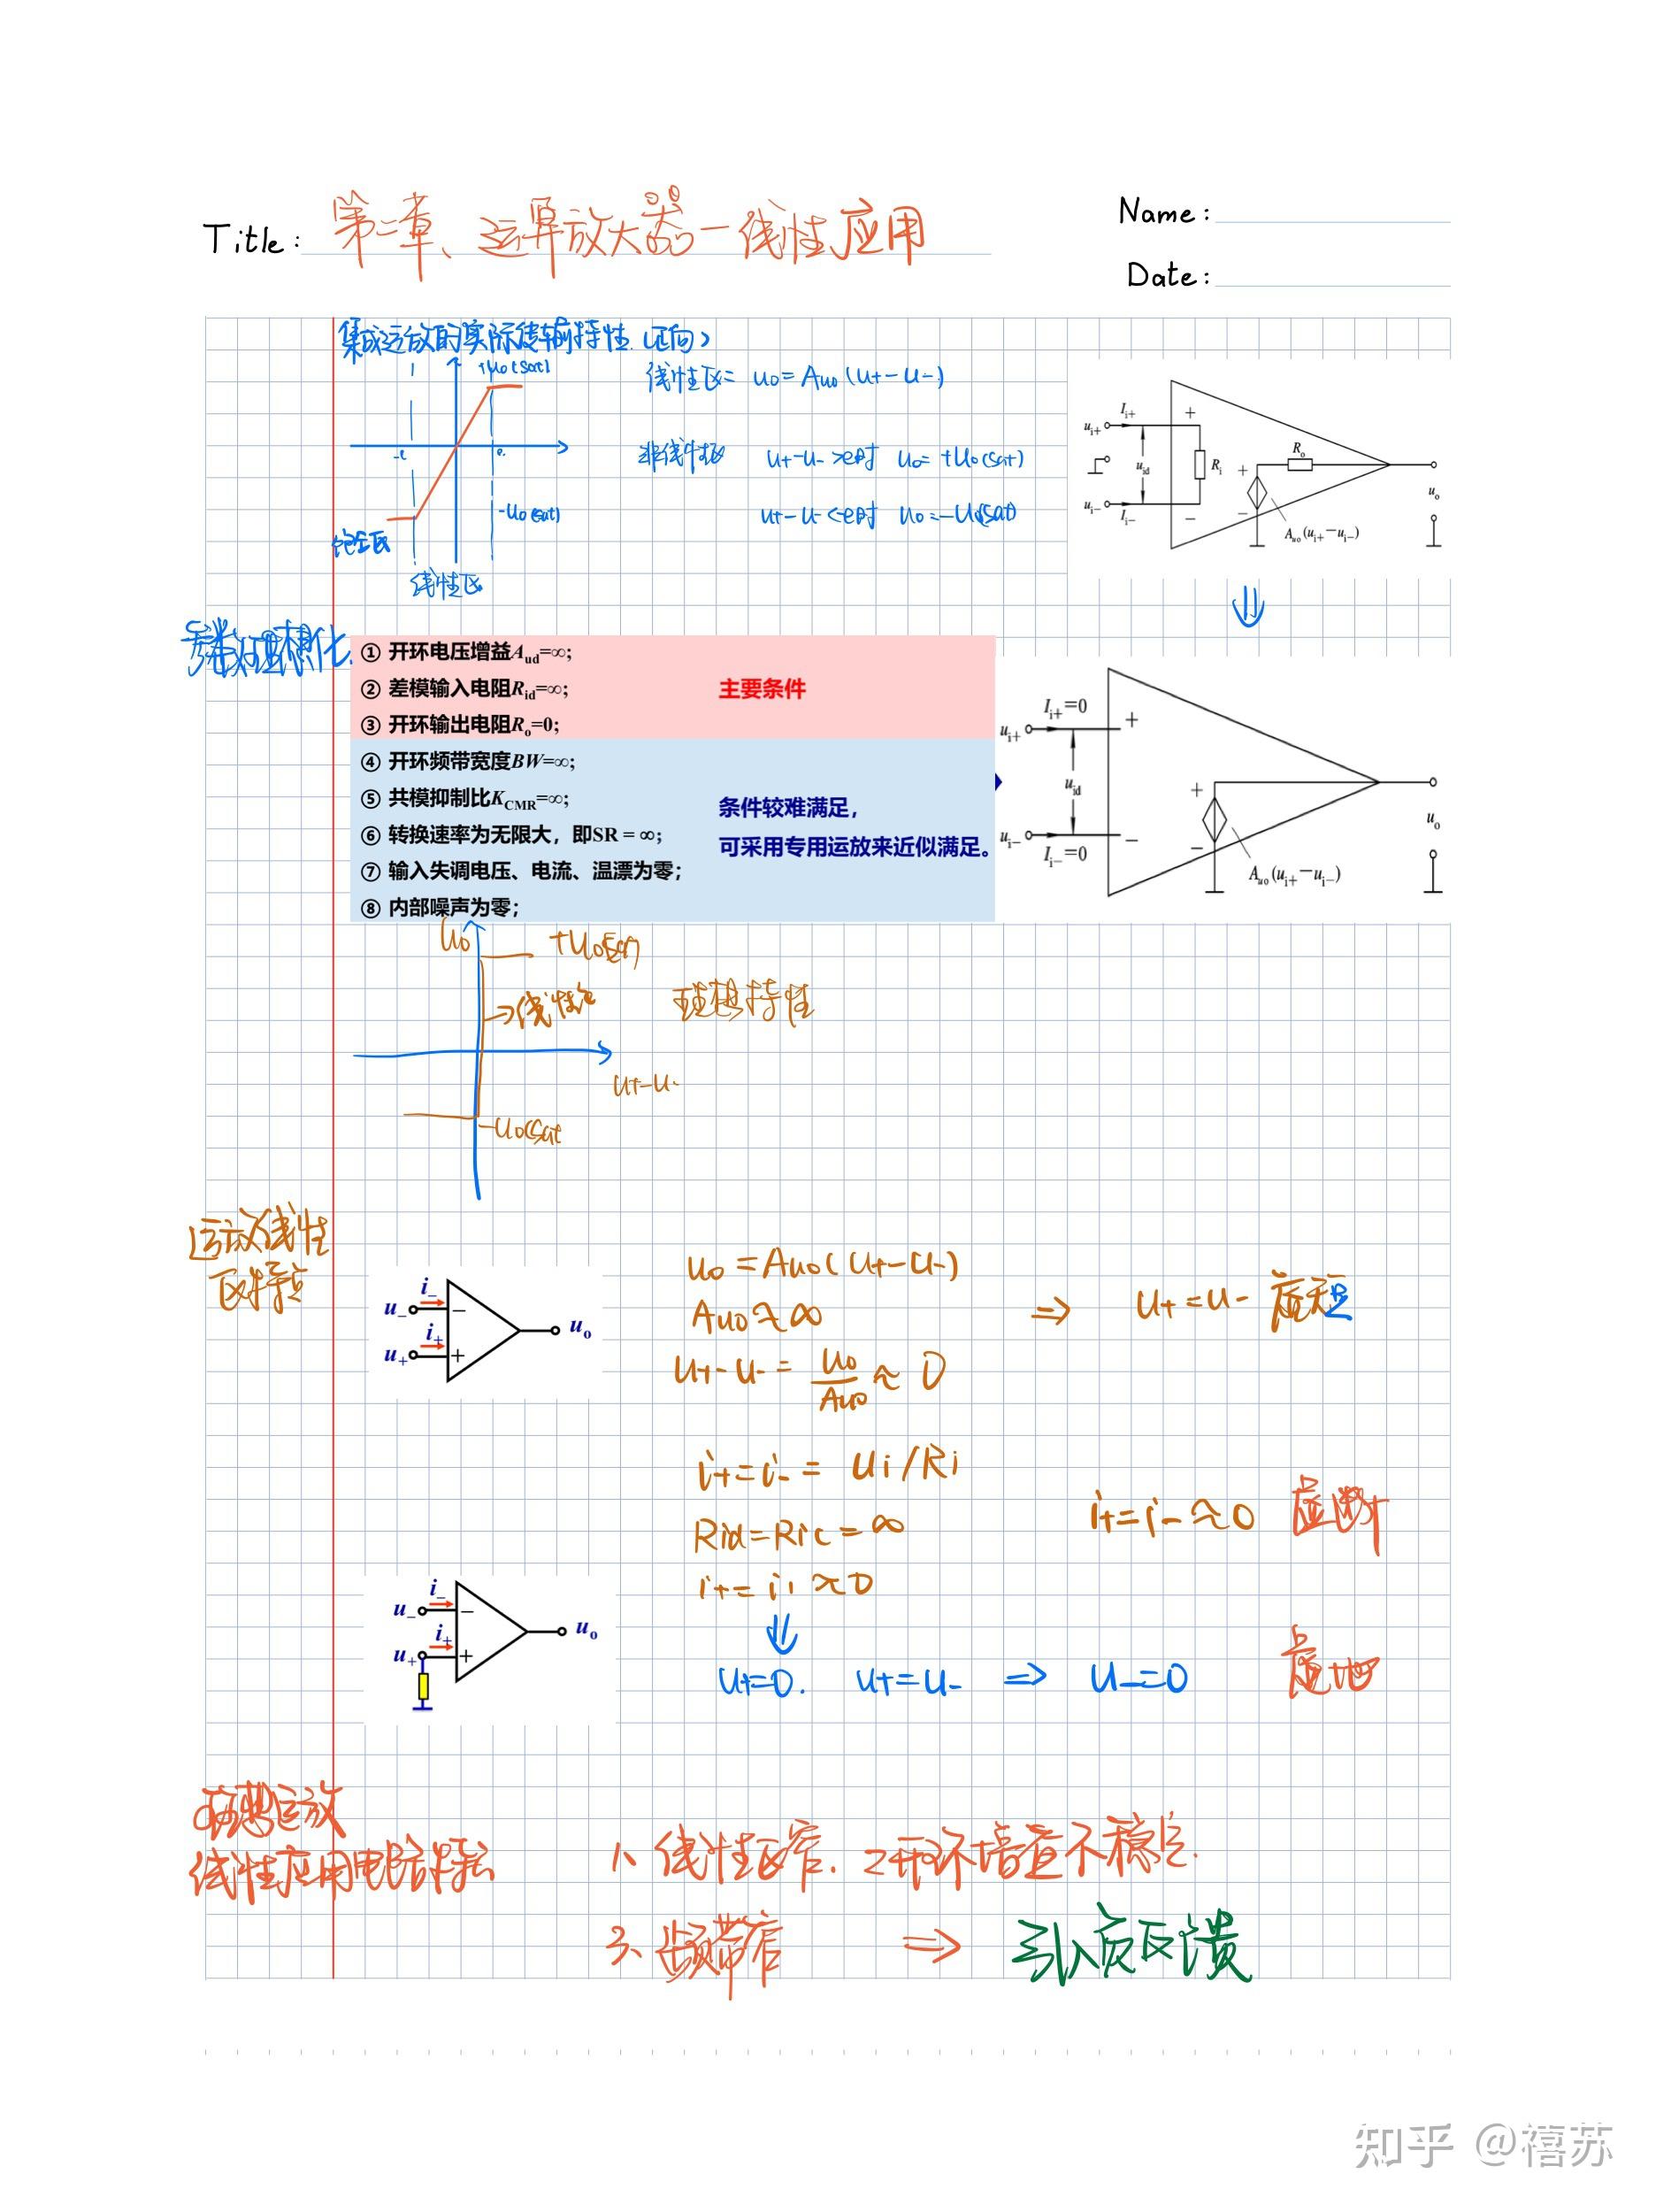 Title: 第二章、运算放大器—线性应用
Name:
Date:
集成运放的实际传输特性
+uo(sat)
-e
e
-uo(sat)
饱和区
线性区
线性区= uo=Auo(u+-u-)
非线性区 u+-u->e时 uo=+uo(sat)
u+-u-<-e时 uo=-uo(sat)
Ii+
ui+
+
uid
Ri
Ro
+
ui-
Ii-
-
-
Auo(ui+-ui-)
uo
参数理想化
① 开环电压增益Aud=∞;
② 差模输入电阻Rid=∞;
③ 开环输出电阻Ro=0;
主要条件
④ 开环频带宽度BW=∞;
⑤ 共模抑制比KCMR=∞;
⑥ 转换速率为无限大，即SR = ∞;
⑦ 输入失调电压、电流、温漂为零;
⑧ 内部噪声为零;
条件较难满足，
可采用专用运放来近似满足。
Ii+=0
ui+
+
uid
+
ui-
Ii-=0
-
-
Auo(ui+-ui-)
uo
uo
+uo(sat)
→线性区
理想特性
u+-u-
-uo(sat
运放线性
区特点
i-
u-
-
i+
u+
+
uo
uo=Auo(u+-u-)
Auo≈∞
u+-u-=uo/Auo≈0
⇒ u+=u- 虚短
i+=i-= ui/Ri
Rid=Ric=∞
i+=i1≈0
i+=i-≈0 虚断
i-
u-
-
i+
u+
+
uo
u+=0. u+=u- ⇒ u-=0 虚地
线性应用电路特点
1、线性区窄. 2开环增益不稳定.
3、频带窄 ⇒ 引入负反馈
知乎 @禧苏